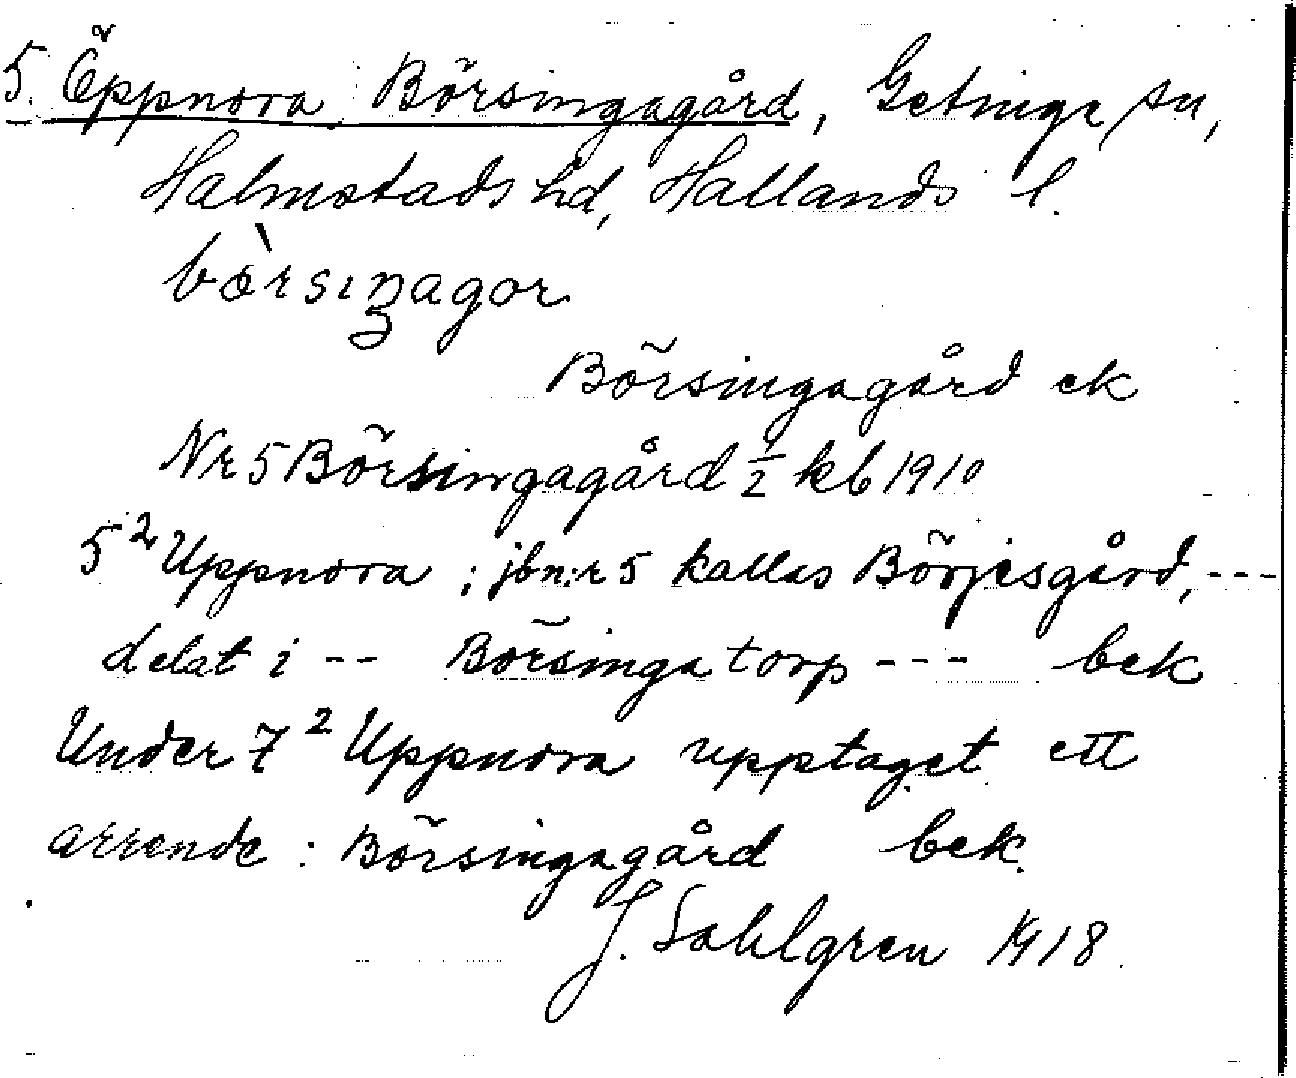 5. Öppnora, Börsingagård, Getinge sn,
Halmstads hd, Hallands l.
bœ̀rsıŋagor
Börsingagård ek
Nr 5 Börsingagård ½ kb 1910
5² Uppnora ; jbn:r 5 kallas Börjesgård, ---
delat i -- Börsinga torp --- bek
Under 7² Uppnora upptaget ett
arrende : Börsingagård bek.
J. Sahlgren 1918.